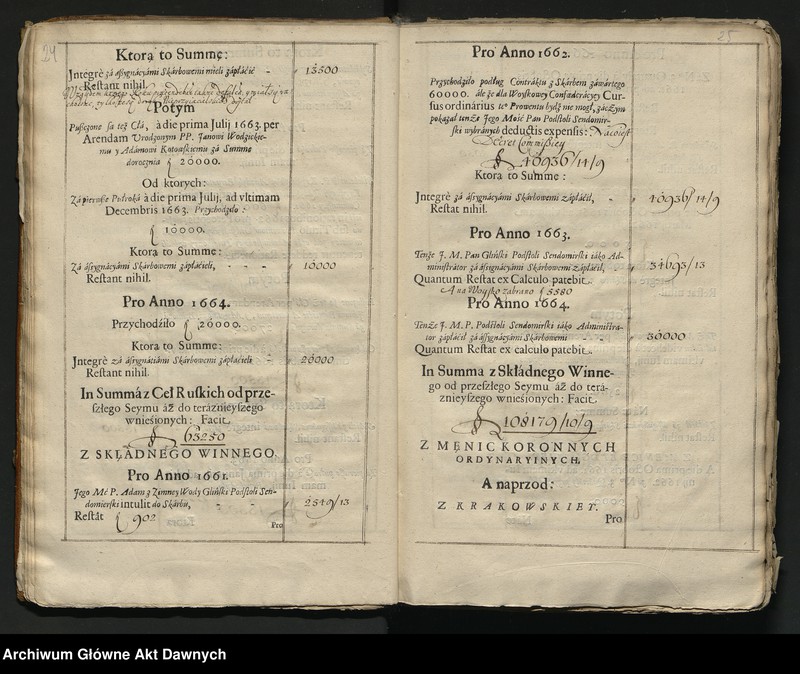 24
Ktora to Summę:
Jntegrè zá áſsygnácyámi Skárbowemi mieli zápłáćić - ƒ 13500
Reſtant nihil.
Potym
Puſzczone ſą też Cłá, à die prima Julij 1663. per
Arendam Urodzonym PP. Janowi Wodzickie-
mu y Adámowi Kotowſkiemu zá Summę
doroczniá ƒ 20000.
Od ktorych:
Zá pierwſze Pułroká à die prima Julij, ad vltimam
Decembris 1663. Przychodźiło:
ƒ 10000.
Ktora to Summe:
Zá áſsygnácyámi Skárbowemi zápłáćieli, - - - ƒ 10000
Reſtant nihil.
Pro Anno 1664.
Przychodźiło ƒ 20000.
Ktora to Summe:
Jntegrè zá áſsygnáciámi Skárbowemi zápłáćieli - ƒ 20000
Reſtant nihil.
In Summá z Ceł Ruſkich od prze-
ſzłego Seymu áż do teráznieyſzego
wnieśionych: Facit.
ƒ 63250
Z SKŁADNEGO WINNEGO.
Pro Anno 1661.
Jego Mć P. Adam z Zimney Wody Gliński Podſtoli Sen-
domierſki intulit do Skárbu, - - ƒ 2549/13
Reſtát ƒ 902
Pro
25
Pro Anno 1662.
Przychodźiło podług Contráktu z Skárbem záwártego
60000. ále że dla Woyſkowey Confæderácyey Cur-
ſus ordinárius te° Prowentu bydź nie mogł, záczym
pokazał tenże Jego Mość Pan Podſtoli Sendomir-
ſki wybránych deductis expenſis:
Decret Commiſſiey
ƒ 40936/14/9
Ktora to Summe:
Jntegrè zá áſsygnácyámi Skárbowemi zápłáćił, - ƒ 40936/14/9
Reſtat nihil.
Pro Anno 1663.
Tenże J. M. Pan Gliński Podſtoli Sendomirſki iáko Ad-
miniſtrátor zá áſsignácyámi Skárbowemi zápłáćił, - ƒ 34693/13
Quantum Reſtat ex Calculo patebit.
A na Woysko zabrano ƒ 3580
Pro Anno 1664.
Tenże J. M. P. Podſtoli Sendomirſki iáko Adminiſtra-
tor zápłáćił zá áſſygnácyámi Skárbowemi - - ƒ 30000
Quantum Reſtat ex calculo patebit.
In Summa z Skłádnego Winne-
go od przeſzłego Seymu áż do terá-
znieyſzego wnieśionych: Facit.
ƒ 108179/10/9
Z MENIC KORONNYCH
ORDYNARYINYCH.
A naprzod:
Z KRAKOWSKIEY.
Pro
Archiwum Główne Akt Dawnych